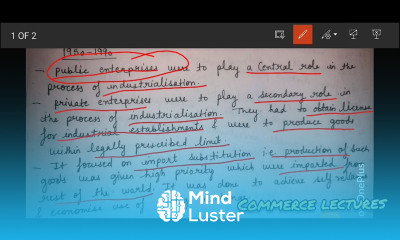 1 OF 2
1950-1990
- Public enterprises were to play a central role in the
process of industrialisation.
- private enterprises were to play a secondary role in
the process of industrialisation. They had to obtain license
for industrial establishments & were to produce goods
within legally prescribed limit.
- It focused on import substitution i.e. production of such
goods was given high priority which were imported from
rest of the world. It was done to achieve self reliance
& economise use of
Mind
Luster
COMMERCE LECTURES
OnePlus